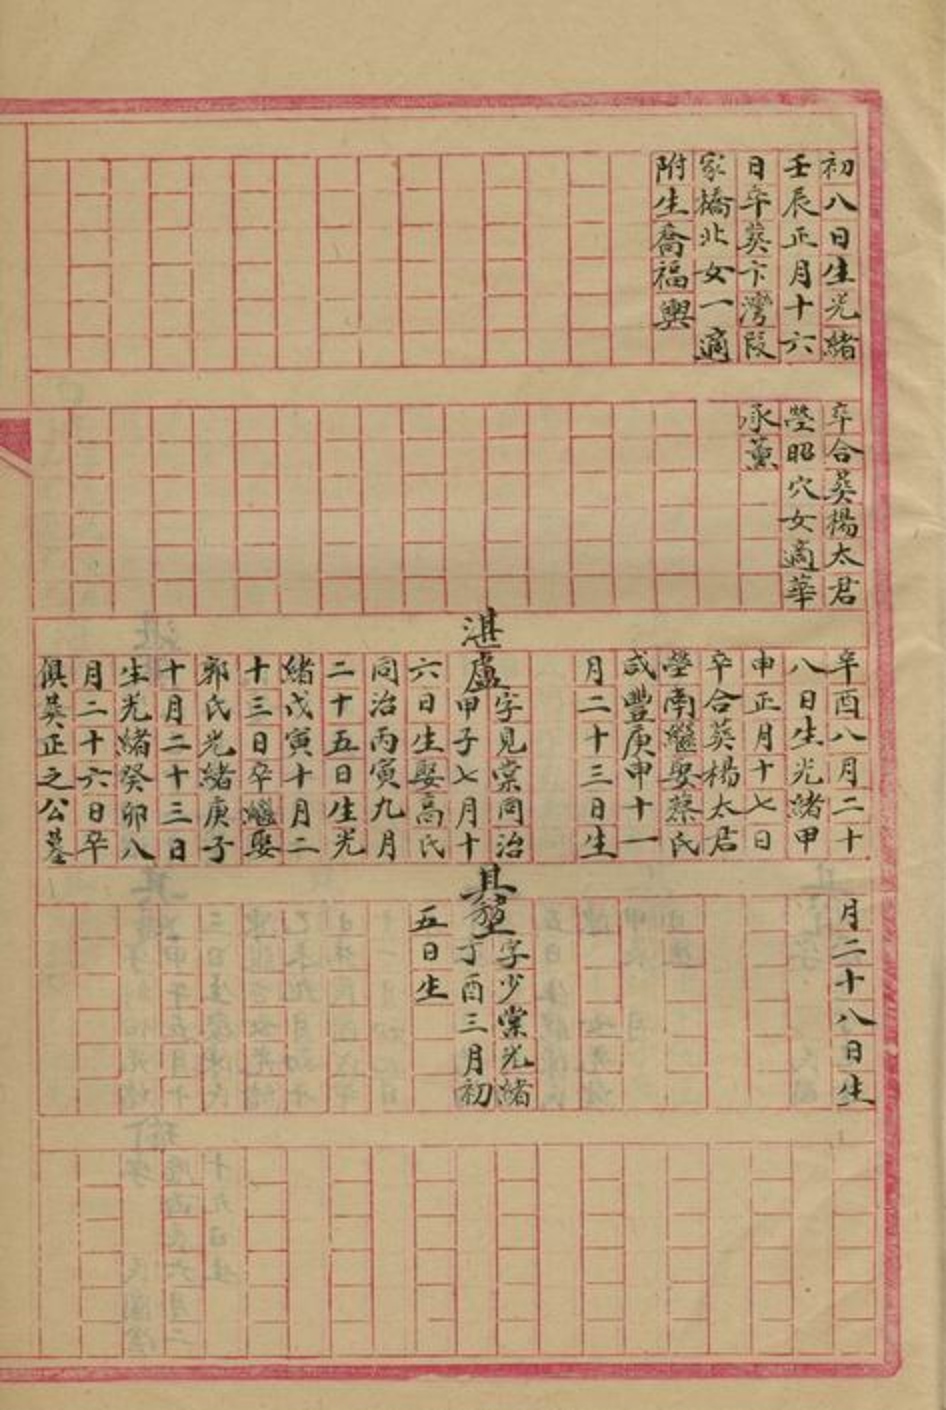 初八日生光緒
壬辰正月十六
日卒葬卞灣段
家橋北女一適
附生喬福興
卒合葬楊太君
塋昭穴女適華
承薰
辛酉八月二十
八日生光緒甲
申正月十七日
卒合葬楊太君
塋南繼娶蔡氏
咸豐庚申十一
月二十三日生
湛盧
字見棠同治
甲子七月十
六日生娶高氏
同治丙寅九月
二十五日生光
緒戊寅十月二
十三日卒繼娶
郭氏光緒庚子
十月二十三日
生光緒癸卯八
月二十六日卒
俱葬正之公墓
月二十八日生
其
字少棠光緒
丁酉三月初
五日生